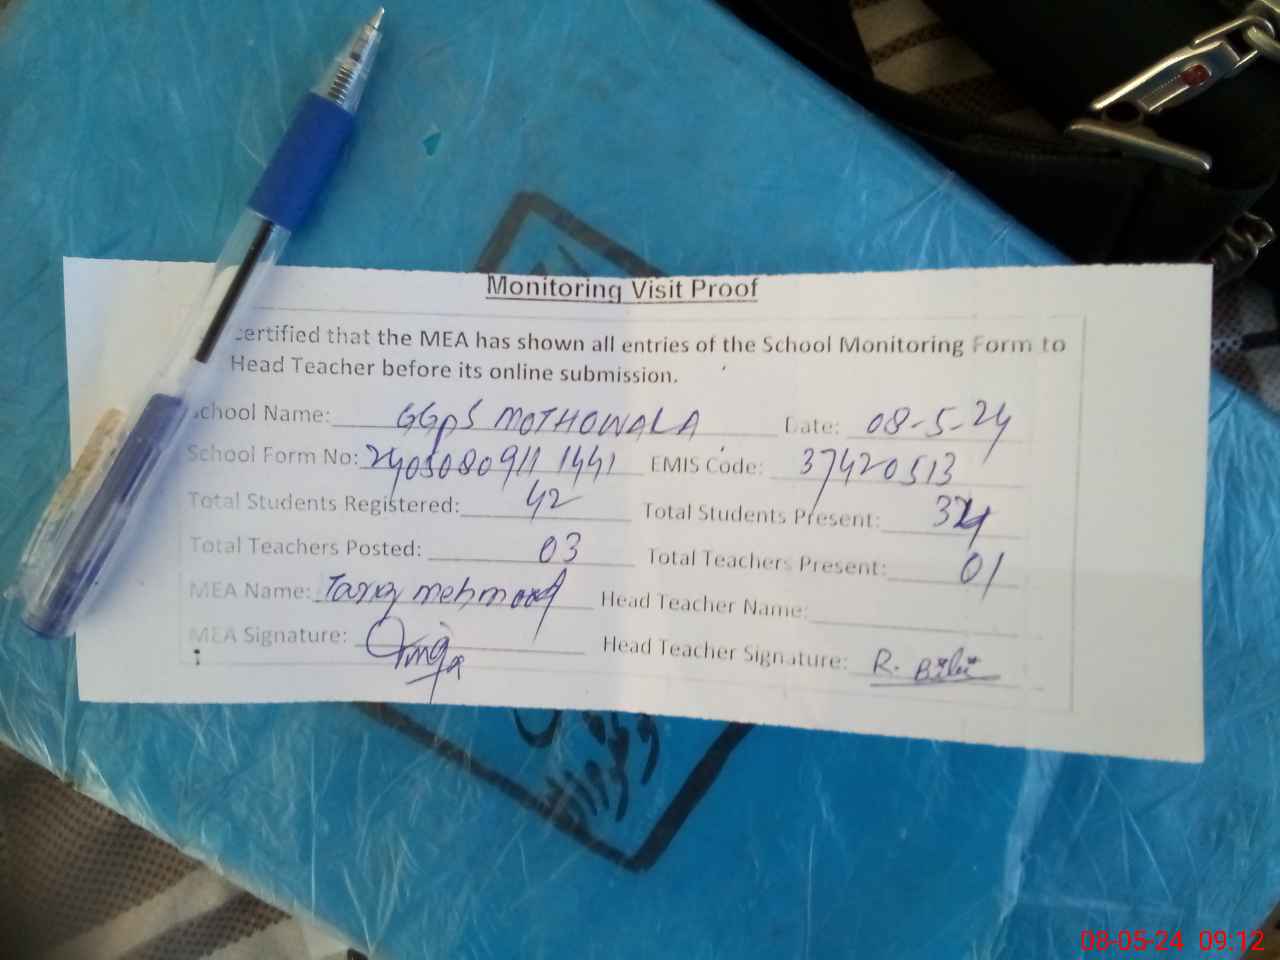 Monitoring Visit Proof
certified that the MEA has shown all entries of the School Monitoring Form to
Head Teacher before its online submission.
School Name: GGPS MOTHOWALA Date: 08-5-24
School Form No: 24050809111441 EMIS Code: 37420513
Total Students Registered: 42 Total Students Present:
Total Teachers Posted: 03 Total Teachers Present: 01
MEA Name: Tariq mehmood Head Teacher Name:
MEA Signature: Head Teacher Signature: R. Bibi
08-05-24 09:12